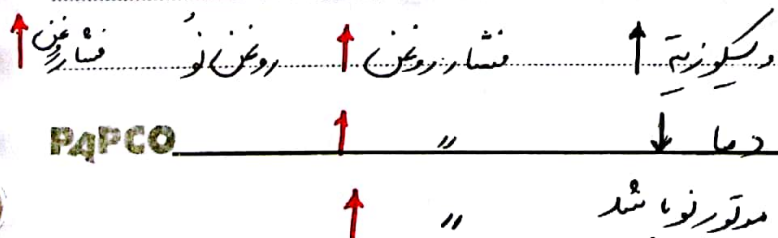 ویسکوزیته ↑ فشار روغن ↑ روغن نُو فشار روغن ↑
دما ↓ " ↑ PAPCO
موتور نو باشد " ↑